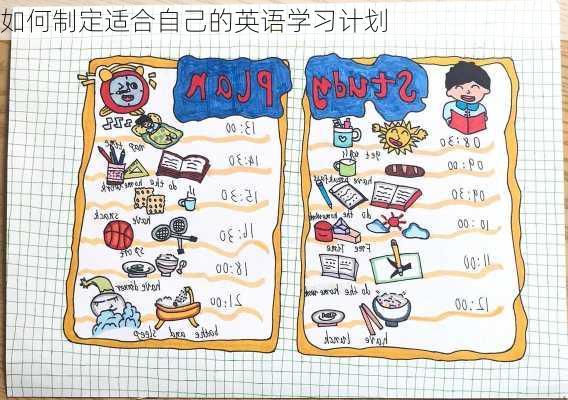 如何制定适合自己的英语学习计划
Study
08:30
get up
09:00
have breakfast
09:30
do the homework
10:00
Free time
11:00
do the home work
12:00
have lunch
Plan
13:00
nap time
14:30
do the homework
15:30
snack
16:30
18:00
have dinner
21:00
bathe and sleep